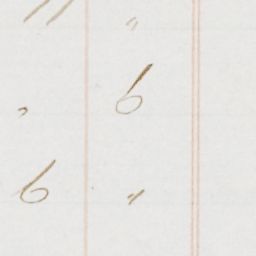 11 "
" 6
6 "